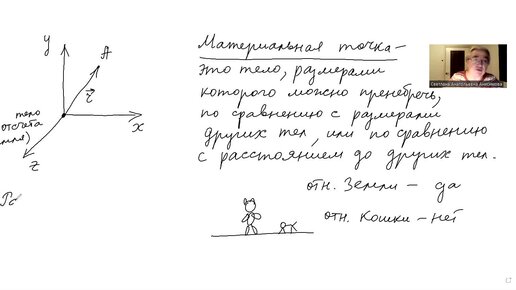 y
A
r
x
z
тело
отсчета
Материальная точка –
это тело, размерами
которого можно пренебречь,
по сравнению с размерами
других тел, или по сравнению
с расстоянием до других тел.
отн. Земли – да
отн. Кошки – нет